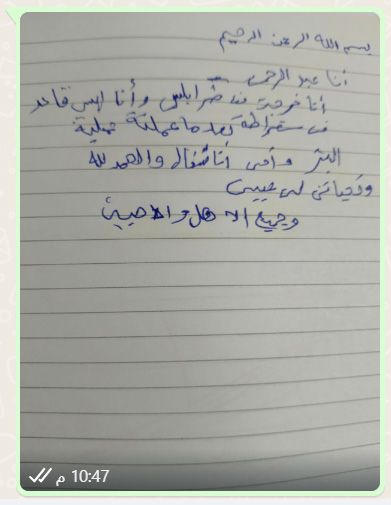 بسم الله الرحمن الرحيم
أنا عبد الرحمن
أنا خرجت من طرابلس وأنا لهس قاعد
في سقراطة بعد ما عملت عملية
البتر و أمي أنا شغال والحمد لله
وتحياتي لي عيسى
وجميع الاهل والاحبين
10:47 م